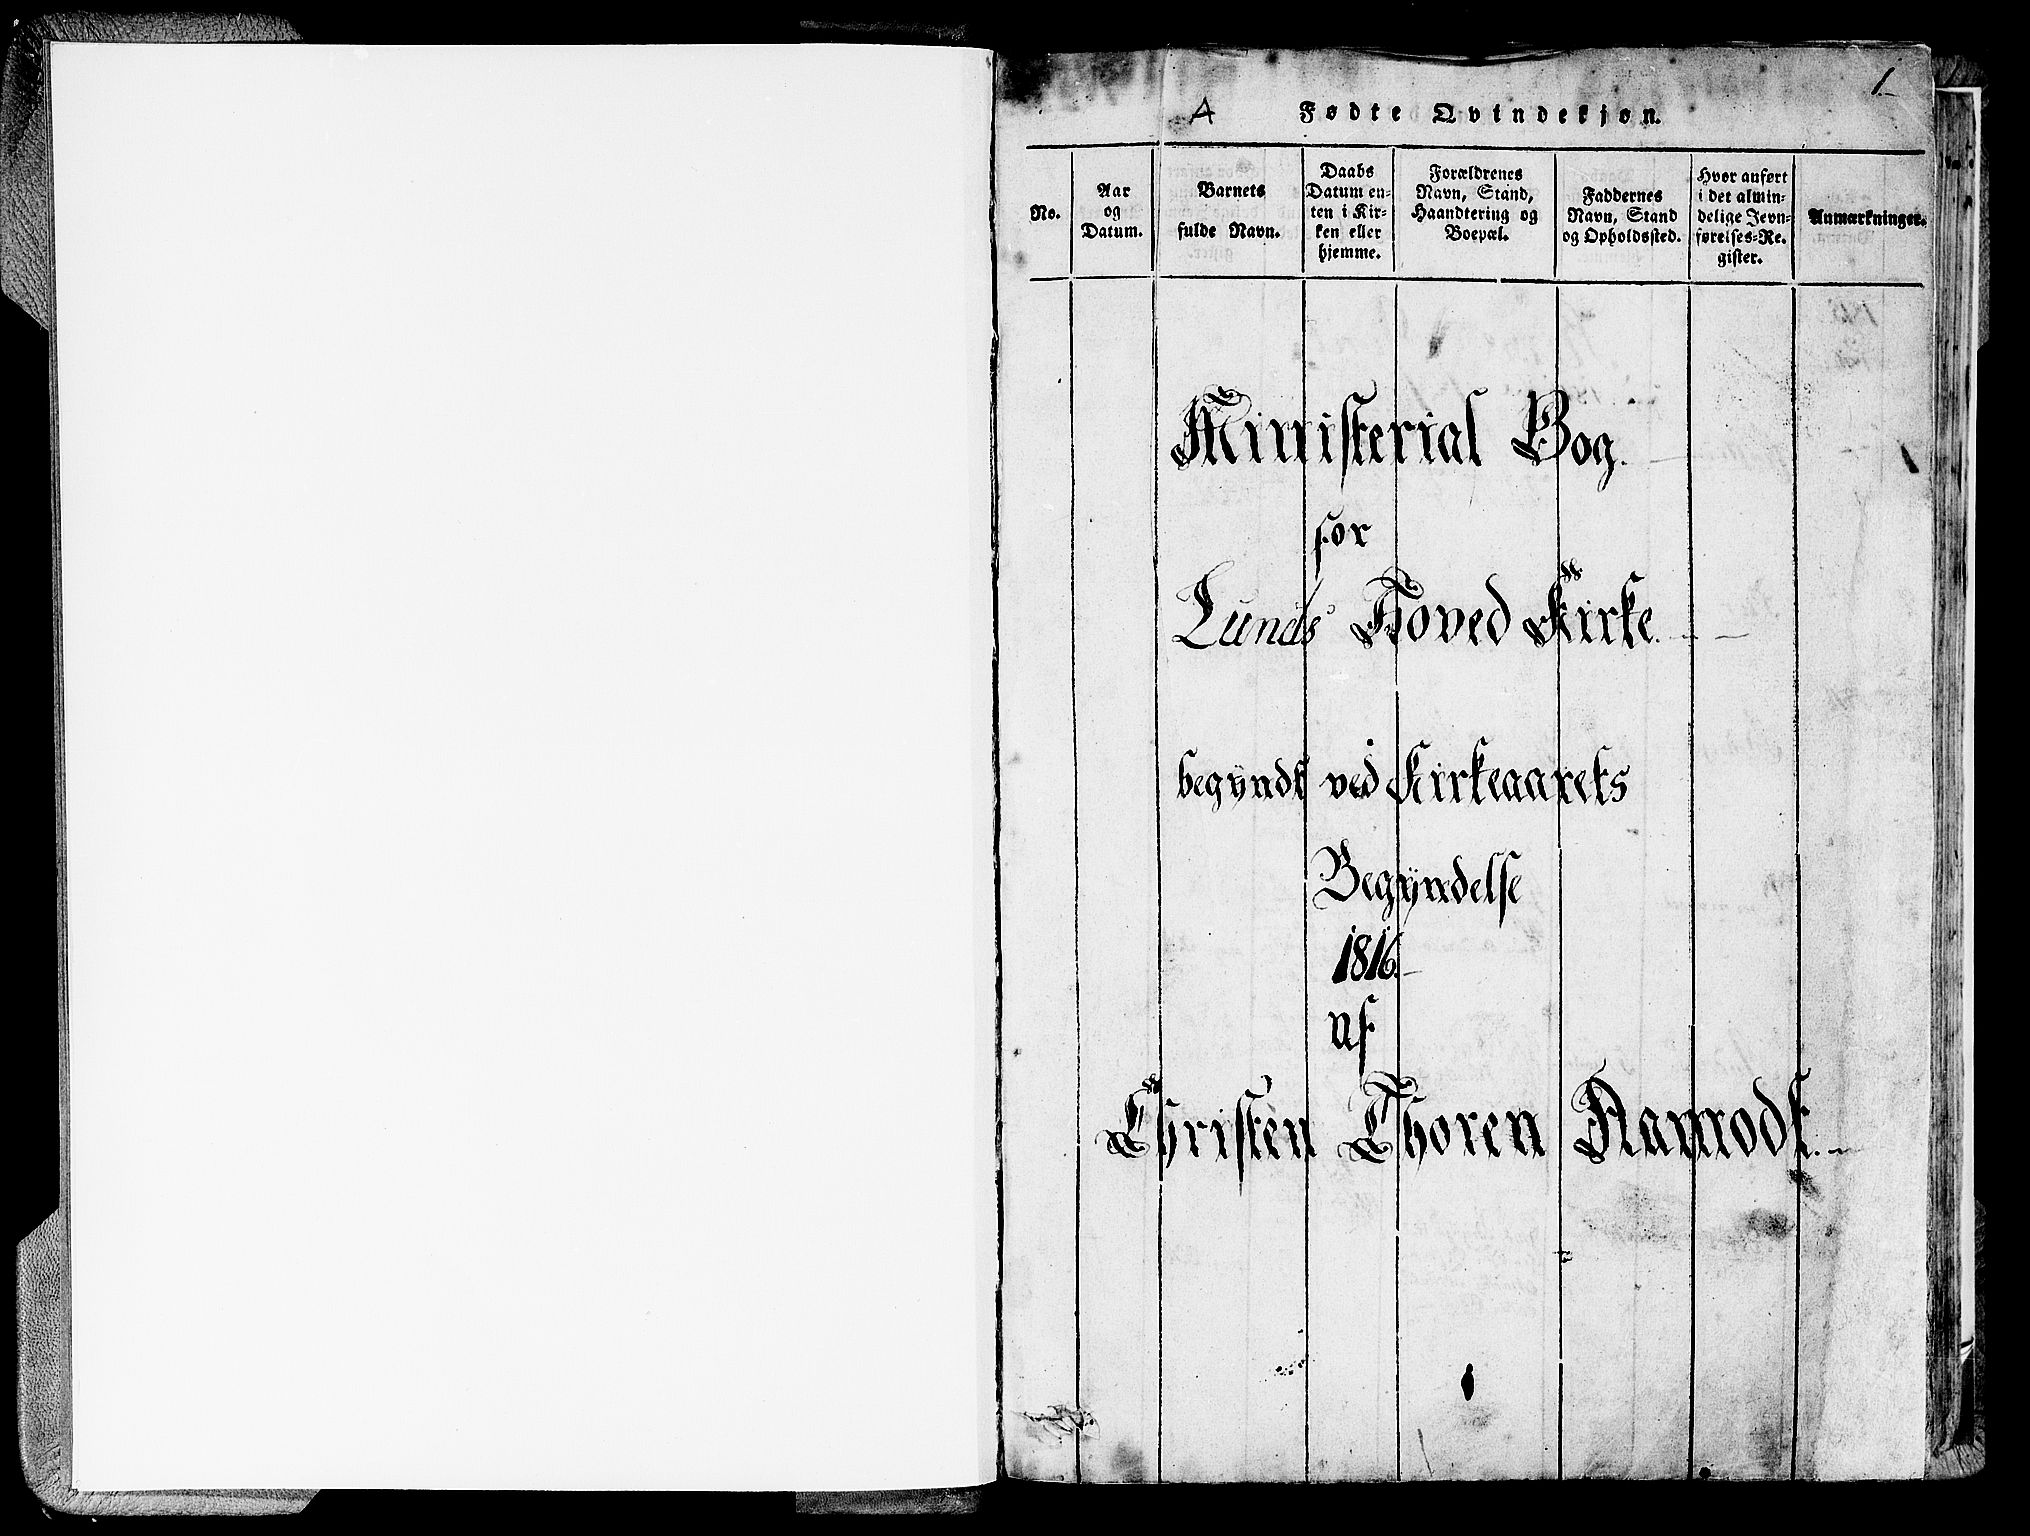 1.
A Fødte Qvindekjøn.
No.
Aar
og
Datum.
Barnets
fulde Navn.
Daabs
Datum en-
ten i Kir-
ken eller
hjemme.
Forældrenes
Navn, Stand,
Haandtering og
Boepæl.
Faddernes
Navn, Stand
og Opholdssted.
Hvor anført
i det almin-
delige Jevn-
førelses-Re-
gister.
Anmærkninger.
Ministerial Bog
for
Lunds Hoved Kirke.
begyndt ved Kirkeaarets
Begyndelse
1816.
af
Christen Thoren